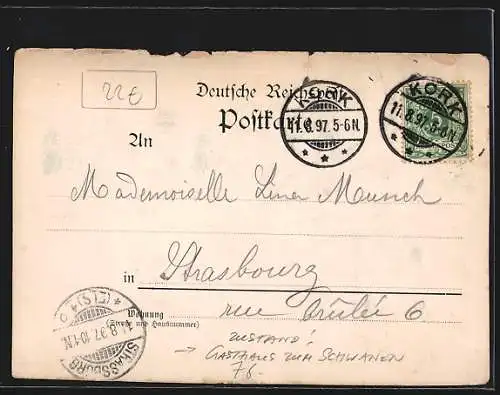 22€
Deutsche Reichspost
Postkarte
KORK
11.8.97.5-6N.
KORK
11.8.97.5-6N.
An
Mademoiselle Lina Muench
in Strasbourg
Wohnung
(Straße und Hausnummer)
rue Brûlée 6
STRASSBURG
11.8.97.10-11N.
* (ELS) *
ZUSTAND!
→ GASTHAUS ZUM SCHWANEN
76.-